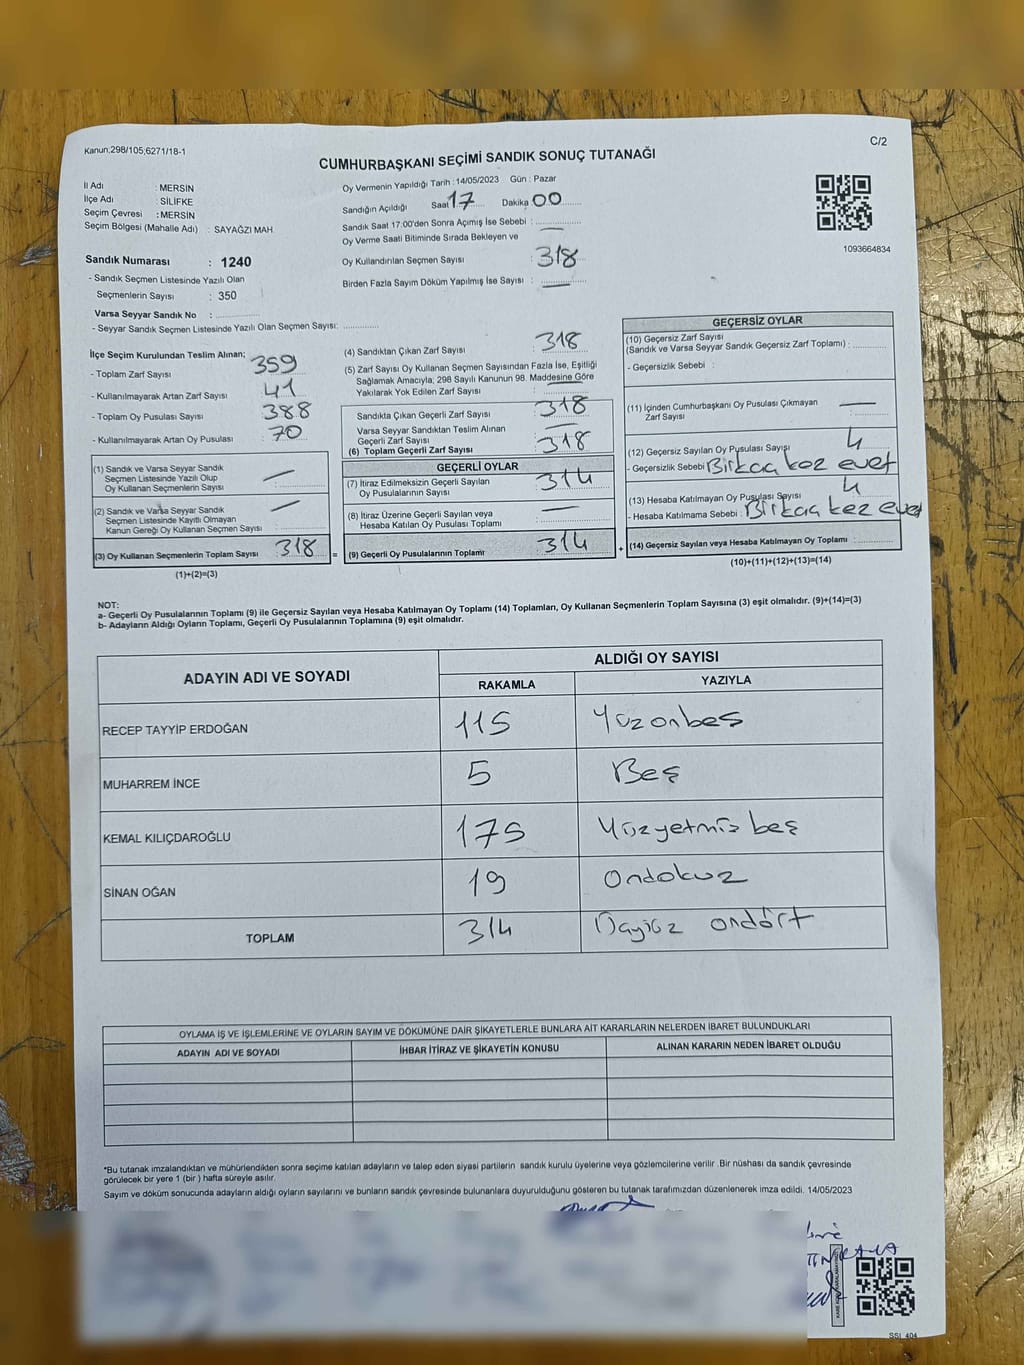 Kanun;298/105;6271/18-1
C/2
CUMHURBAŞKANI SEÇİMİ SANDIK SONUÇ TUTANAĞI
İl Adı : MERSİN
İlçe Adı : SİLİFKE
Seçim Çevresi : MERSİN
Seçim Bölgesi (Mahalle Adı) : SAYAĞZI MAH.
Sandık Numarası : 1240
- Sandık Seçmen Listesinde Yazılı Olan
Seçmenlerin Sayısı : 350
Varsa Seyyar Sandık No : ..............
- Seyyar Sandık Seçmen Listesinde Yazılı Olan Seçmen Sayısı: ..............
Oy Vermenin Yapıldığı Tarih : 14/05/2023 Gün : Pazar
Sandığın Açıldığı Saat 17 Dakika 00
Sandık Saat 17:00'den Sonra Açımış İse Sebebi : —
Oy Verme Saati Bitiminde Sırada Bekleyen ve
Oy Kullandırılan Seçmen Sayısı : 318
Birden Fazla Sayım Döküm Yapılmış İse Sayısı : —
1093664834
İlçe Seçim Kurulundan Teslim Alınan;
- Toplam Zarf Sayısı : 359
- Kullanılmayarak Artan Zarf Sayısı : 41
- Toplam Oy Pusulası Sayısı : 388
- Kullanılmayarak Artan Oy Pusulası : 70
(1) Sandık ve Varsa Seyyar Sandık
Seçmen Listesinde Yazılı Olup
Oy Kullanan Seçmenlerin Sayısı : —
(2) Sandık ve Varsa Seyyar Sandık
Seçmen Listesinde Kayıtlı Olmayan
Kanun Gereği Oy Kullanan Seçmen Sayısı : —
(3) Oy Kullanan Seçmenlerin Toplam Sayısı : 318 =
(1)+(2)=(3)
(4) Sandıktan Çıkan Zarf Sayısı : 318
(5) Zarf Sayısı Oy Kullanan Seçmen Sayısından Fazla İse, Eşitliği
Sağlamak Amacıyla, 298 Sayılı Kanunun 98. Maddesine Göre
Yakılarak Yok Edilen Zarf Sayısı : —
Sandıkta Çıkan Geçerli Zarf Sayısı : 318
Varsa Seyyar Sandıktan Teslim Alınan
Geçerli Zarf Sayısı : —
(6) Toplam Geçerli Zarf Sayısı : 318
GEÇERLİ OYLAR
(7) İtiraz Edilmeksizin Geçerli Sayılan
Oy Pusulalarının Sayısı : 314
(8) İtiraz Üzerine Geçerli Sayılan veya
Hesaba Katılan Oy Pusulası Toplamı : —
(9) Geçerli Oy Pusulalarının Toplamı : 314 +
GEÇERSİZ OYLAR
(10) Geçersiz Zarf Sayısı
(Sandık ve Varsa Seyyar Sandık Geçersiz Zarf Toplamı) : ..........
- Geçersizlik Sebebi :
(11) İçinden Cumhurbaşkanı Oy Pusulası Çıkmayan
Zarf Sayısı : —
(12) Geçersiz Sayılan Oy Pusulası Sayısı : 4
- Geçersizlik Sebebi : Birkaç kez evet
(13) Hesaba Katılmayan Oy Pusulası Sayısı : 4
- Hesaba Katılmama Sebebi : Birkaç kez evet
(14) Geçersiz Sayılan veya Hesaba Katılmayan Oy Toplamı : ..........
(10)+(11)+(12)+(13)=(14)
NOT:
a- Geçerli Oy Pusulalarının Toplamı (9) ile Geçersiz Sayılan veya Hesaba Katılmayan Oy Toplamı (14) Toplamları, Oy Kullanan Seçmenlerin Toplam Sayısına (3) eşit olmalıdır. (9)+(14)=(3)
b- Adayların Aldığı Oyların Toplamı, Geçerli Oy Pusulalarının Toplamına (9) eşit olmalıdır.
ADAYIN ADI VE SOYADI
ALDIĞI OY SAYISI
RAKAMLA YAZIYLA
RECEP TAYYİP ERDOĞAN 115 Yüzonbeş
MUHARREM İNCE 5 Beş
KEMAL KILIÇDAROĞLU 175 Yüzyetmiş beş
SİNAN OĞAN 19 Ondokuz
TOPLAM 314 Üçyüz ondört
OYLAMA İŞ VE İŞLEMLERİNE VE OYLARIN SAYIM VE DÖKÜMÜNE DAİR ŞİKAYETLERLE BUNLARA AİT KARARLARIN NELERDEN İBARET BULUNDUKLARI
ADAYIN ADI VE SOYADI İHBAR İTİRAZ VE ŞİKAYETİN KONUSU ALINAN KARARIN NEDEN İBARET OLDUĞU
*Bu tutanak imzalandıktan ve mühürlendikten sonra seçime katılan adayların ve talep eden siyasi partilerin sandık kurulu üyelerine veya gözlemcilerine verilir .Bir nüshası da sandık çevresinde
görülecek bir yere 1 (bir) hafta süreyle asılır.
Sayım ve döküm sonucunda adayların aldığı oyların sayılarını ve bunların sandık çevresinde bulunanlara duyurulduğunu gösteren bu tutanak tarafımızdan düzenlenerek imza edildi. 14/05/2023
SSI_404